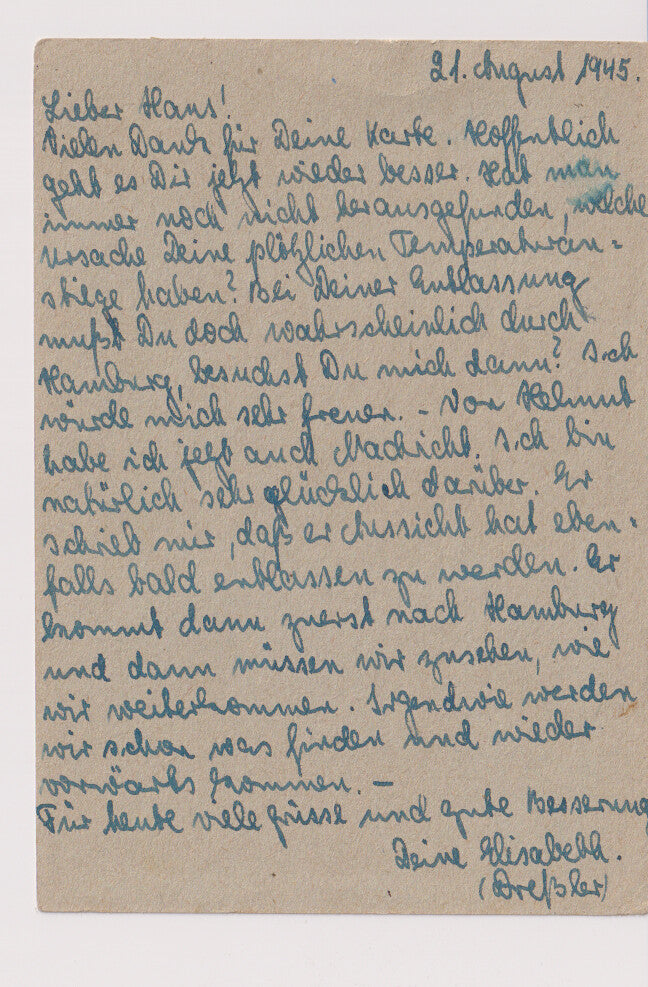 21. August 1945.
Lieber Hans!
Vielen Dank für Deine Karte. Hoffentlich
geht es Dir jetzt wieder besser. Hat man
immer noch nicht herausgefunden, welche
Ursache Deine plötzlichen Temperaturan=
stiege haben? Bei Deiner Entlassung
mußt Du doch wahrscheinlich durch
Hamburg, besuchst Du mich dann? Ich
würde mich sehr freuen. – Von Helmut
habe ich jetzt auch Nachricht. Ich bin
natürlich sehr glücklich darüber. Er
schrieb mir, daß er Aussicht hat eben=
falls bald entlassen zu werden. Er
kommt dann zuerst nach Hamburg
und dann müssen wir zusehen, wie
wir weiterkommen. Irgendwie werden
wir schon was finden und wieder
vorwärts kommen. –
Für heute viele Grüsse und gute Besserung
Deine Elisabeth.
(Dreßler)